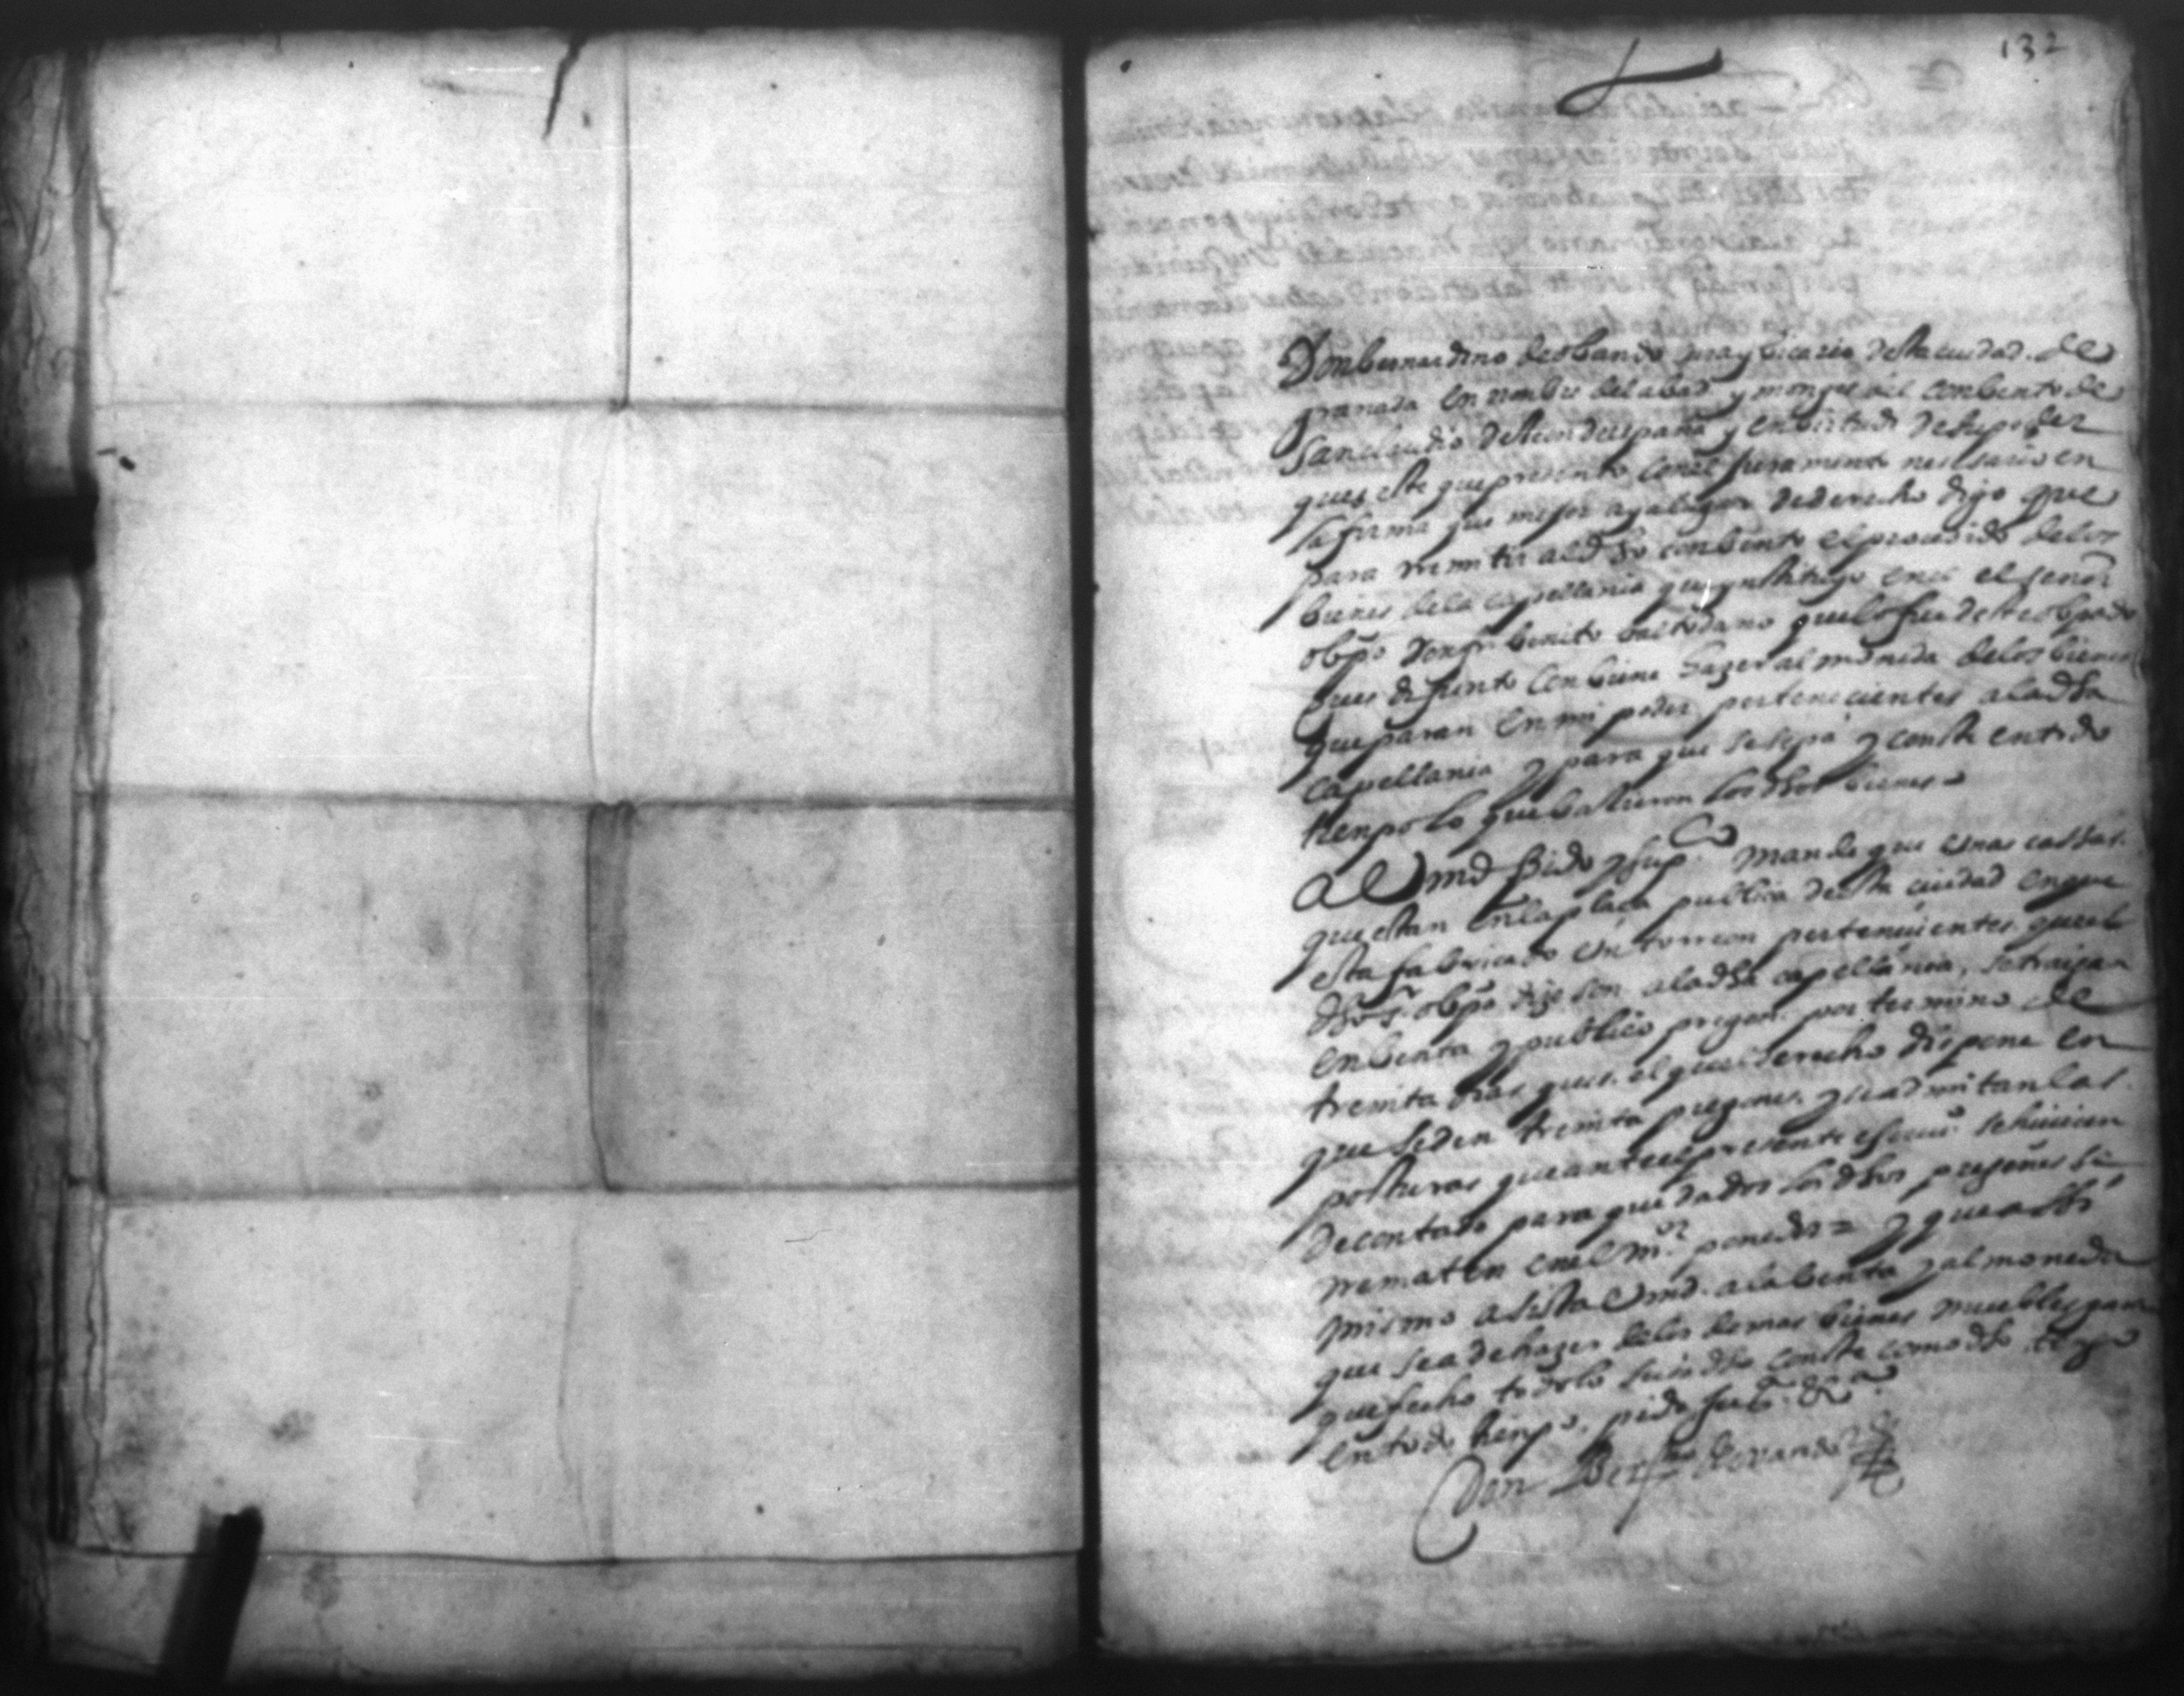 132
Don bernardino de obando cura y bicario desta ciudad de
granada en nombre del abad y monges del conbento de
san claudio de leon de españa y en birtud de su poder
que es este que presento con el juramento nesesario en
la forma que mejor aya lugar de derecho digo que
para rremitir al dho conbento el prosedido de los
bienes de la capellania que ynstituyo en el el señor
obpo don fr benito baltodano que lo fue deste obpado
que es difunto conbiene hazer almoneda de los bienes
que paran en mi poder pertenecientes a la dha
capellania y para que se sepa y conste en todo
tienpo lo que balieron los dhos bienes
A Vmd pido y supco mande que unas cassas
que estan en la plaça publica desta ciudad en que
esta fabricado un torreon pertenecientes que el
dho sr obpo dijo son a la dha capellania, se traigan
en benta y publico pregon por termino de
treinta dias que es el que el derecho dispone en
que se den treinta pregones y se admitan las
posturas que ante el presente escriuo se hicieren
de contado para que dados los dhos pregones se
rematen en el mor ponedor = y que assi
mismo asista Vmd a la benta y almoneda
que se a de hazer de los demas bienes muebles para
que fecho todo lo suso dho conste como dho tengo
en todo tienpo, pido justa &a
Don Berno de obando